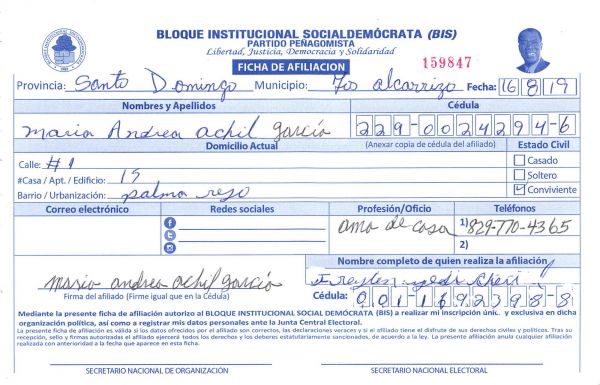 BLOQUE INSTITUCIONAL SOCIALDEMÓCRATA (BIS)
PARTIDO PEÑAGOMISTA
Libertad, Justicia, Democracia y Solidaridad
FICHA DE AFILIACION
159847
Provincia: Santo Domingo Municipio: los alcarrizo Fecha: 16 8 19
Nombres y Apellidos Cédula
Maria Andrea Achil garcía 229-0024294-6
Domicilio Actual (Anexar copia de cédula del afiliado) Estado Civil
Calle: #1 Casado
#Casa / Apt. / Edificio: 15 Soltero
Barrio / Urbanización: palma rejo Conviviente
Correo electrónico Redes sociales Profesión/Oficio Teléfonos
ama de casa 1) 829-770-4365
2)
Nombre completo de quien realiza la afiliación
maria andrea achil garcía
Firma del afiliado (Firme igual que en la Cédula) Cédula: 001-1692398-8
Mediante la presente ficha de afiliación autorizo al BLOQUE INSTITUCIONAL SOCIAL DEMÓCRATA (BIS) a realizar mi inscripción única y exclusiva en dicha
organización política, así como a registrar mis datos personales ante la Junta Central Electoral.
La presente ficha de afiliación es válida si los datos ofrecidos por el afiliado son correctos, las declaraciones veraces y si el afiliado tiene el disfrute de sus derechos civiles y políticos. Tras su
recepción, sello y firmas autorizadas el afiliado ejercerá todos los derechos y los deberes estatutariamente sancionados, de acuerdo a la ley. La presente afiliación anula cualquier afiliación
realizada con anterioridad a la fecha que aparece en esta ficha.
SECRETARIO NACIONAL DE ORGANIZACIÓN SECRETARIO NACIONAL ELECTORAL